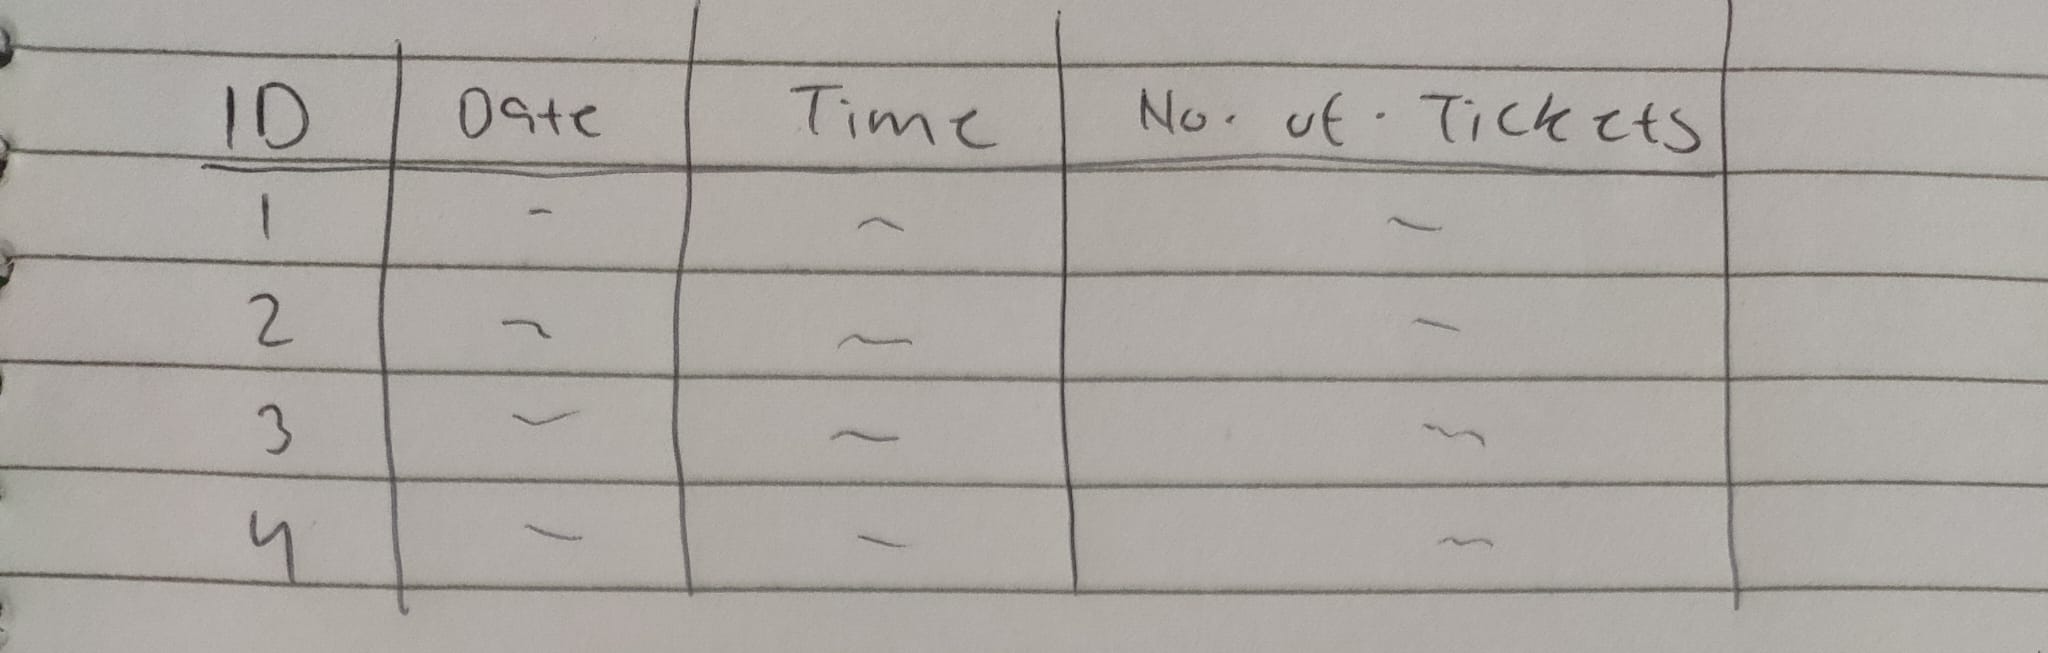 ID Date Time No. of. Tickets
1 - ~ ~
2 ~ ~ -
3 ~ ~ ~
4 - - ~